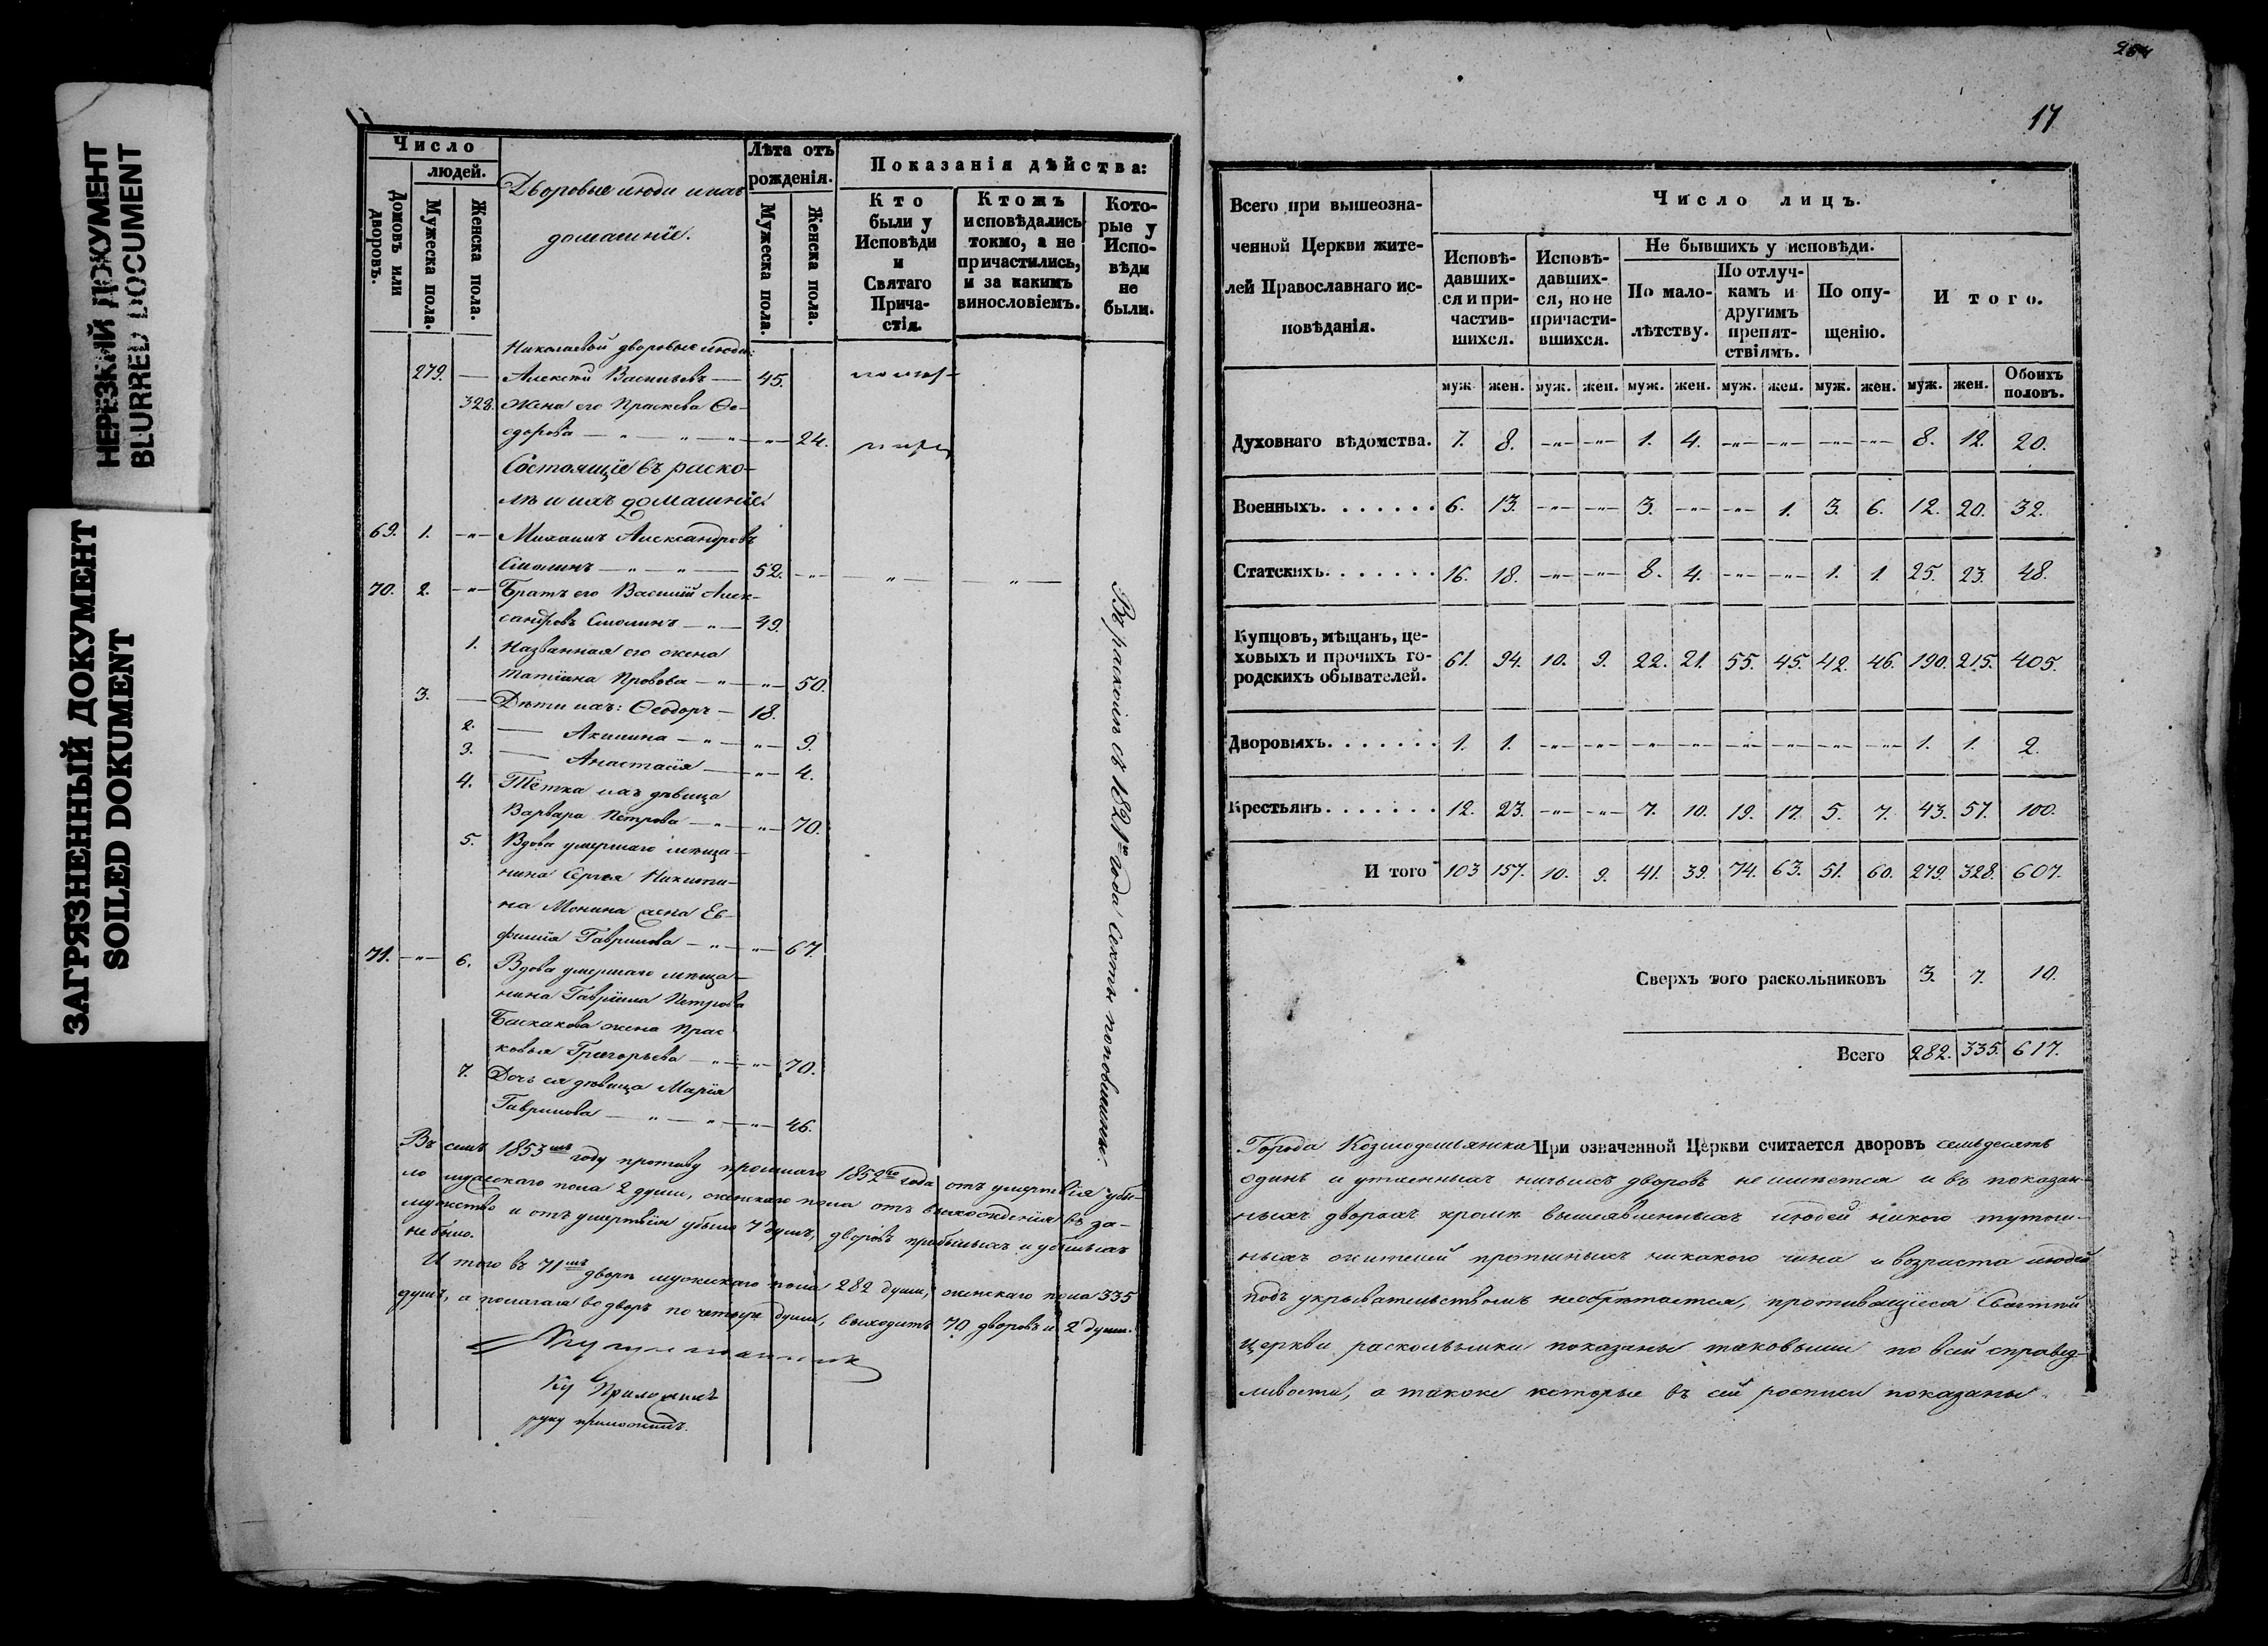 НЕРЕЗКИЙ ДОКУМЕНТ
BLURRED DOCUMENT
ЗАГРЯЗНЕННЫЙ ДОКУМЕНТ
SOILED DOKUMENT
Число
людей.
Домовъ или дворовъ.
Мужеска пола.
Женска пола.
Дворовые люди и ихъ
домашніе.
Лѣта отъ
рожденія.
Мужеска пола.
Женска пола.
Показанія дѣйства:
Кто
были у
Исповѣди
и
Святаго
Прича-
стія.
Ктожъ
исповѣдались
токмо, а не
причастились,
и за какимъ
винословіемъ.
Кото-
рые у
Испо-
вѣди
не
были.
Николаевой дворовые люди:
279. — Алексѣй Васильевъ — 45.
328. Жена его Праскева Ѳе-
одорова — „ — „ — „ — „ — 24.
Состоящіе въ раско-
лѣ и ихъ домашніе.
69. 1. — „ — Михаилъ Александровъ
Смолинъ — „ — „ — 52. — „ — „ — „ —
70. 2. — „ — Братъ его Василій Алек-
сандровъ Смолинъ — „ — 49.
1. Названная его жена
Татіана Провова — „ — „ — 50.
3. — Дѣти ихъ: Ѳеодоръ — 18.
2. — Акилина — „ — „ — 9.
3. — Анастасія — „ — 4.
4. Тётка ихъ дѣвица
Варвара Петрова — „ — „ — 70.
5. Вдова умершаго мѣща-
нина Сергѣя Никити-
на Монина жена Ев-
фимія Гаврилова — „ — „ — 67.
71. — „ — 6. Вдова умершаго мѣща-
нина Гавріила Петрова
Баскакова жена Прас
ковья Григорьева — „ — „ — 70.
7. Дочь ея дѣвица Марія
Гаврилова — „ — „ — „ — 46.
Въ расколѣ съ 1821го года секты поповщинной.
Въ семъ 1853мъ году противу прошлаго 1852го года отъ умертвія убы-
ло мужскаго пола 2 души, женскаго пола отъ выхожденія въ за-
мужство и отъ умертвія убыло 7 душъ, дворовъ прибылыхъ и убылыхъ
не было.
И того въ 71мъ дворѣ мужскаго пола 282 души, женскаго пола 335
душъ, а полагая во дворъ по четыре души, выходитъ 70 дворовъ и 2 души.
руку приложилъ.
17
Всего при вышеозна-
ченной Церкви жите-
лей Православнаго ис-
повѣданія.
Число лицъ.
Исповѣ-
давших-
ся и при-
частив-
шихся.
Исповѣ-
давших-
ся, но не
причасти-
вшихся.
Не бывшихъ у исповѣди.
По мало-
лѣтству.
По отлуч-
камъ и
другимъ
препят-
ствіямъ.
По опу-
щенію.
И того.
муж. жен. муж. жен. муж. жен. муж. жен. муж. жен. муж. жен. Обоихъ половъ.
Духовнаго вѣдомства. 7. 8. — „ — — „ — 1. 4. — „ — — „ — — „ — — „ — 8. 12. 20.
Военныхъ. . . . . . . 6. 13. — „ — — „ — 3. — „ — — „ — 1. 3. 6. 12. 20. 32.
Статскихъ. . . . . . . 16. 18. — „ — — „ — 8. 4. — „ — — „ — 1. 1 25. 23. 48.
Купцовъ, мѣщанъ, це-
ховыхъ и прочихъ го-
родскихъ обывателей. 61. 94. 10. 9. 22. 21. 55. 45. 42. 46. 190. 215. 405.
Дворовыхъ. . . . . . . 1. 1. — „ — — „ — — „ — — „ — — „ — — „ — — „ — — „ — 1. 1. 2.
Крестьянъ. . . . . . . 12. 23. — „ — — „ — 7. 10. 19. 17. 5. 7. 43. 57. 100.
И того 103 157. 10. 9. 41. 39. 74. 63. 51. 60. 279. 328. 607.
Сверхъ того раскольниковъ 3. 7. 10.
Всего 282. 335. 617.
Города Козмодемьянска При означенной Церкви считается дворовъ семьдесятъ
одинъ и утаенныхъ ничьихъ дворовъ не имѣется и въ показан-
ныхъ дворахъ кромѣ вышеявленныхъ людей никого тутош-
ныхъ жителей протчихъ никакого чина и возраста людей
подъ укрывательствомъ не обрѣтается, противящіеся Святой
Церкви раскольники показаны таковыми по всей справед-
ливости, а также которые въ сей росписи показаны